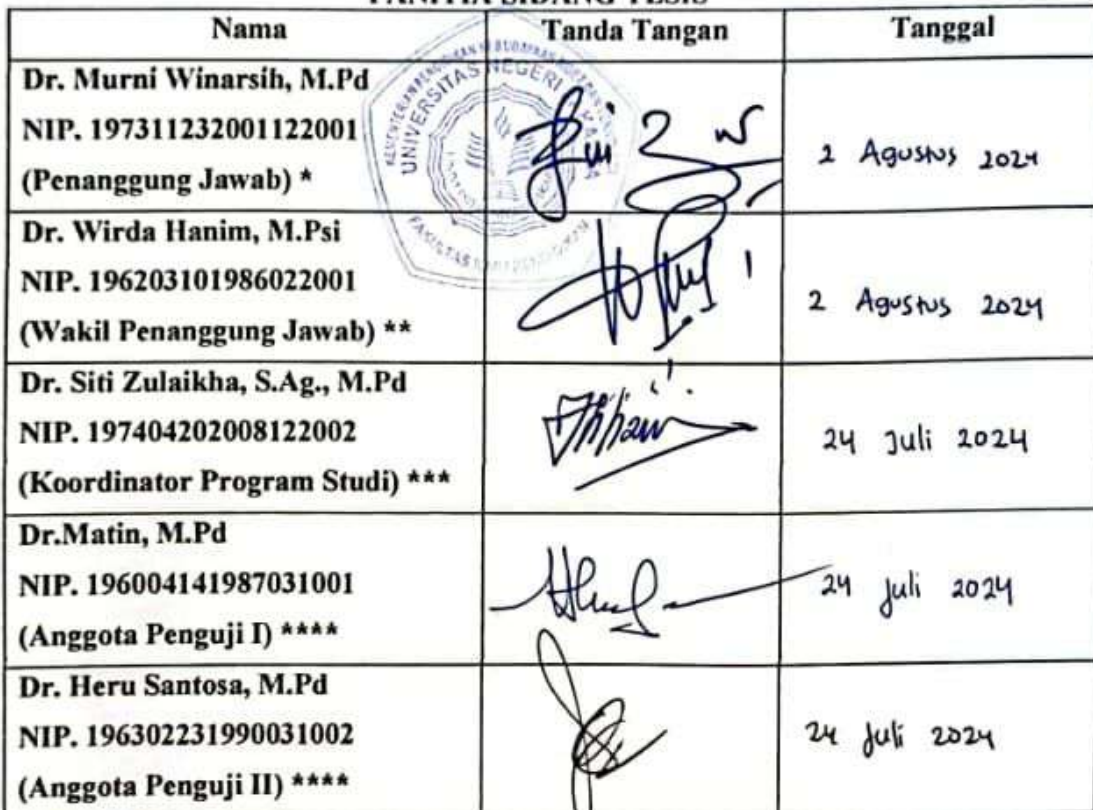 PANITIA SIDANG TESIS
Nama
Tanda Tangan
Tanggal
Dr. Murni Winarsih, M.Pd
NIP. 197311232001122001
(Penanggung Jawab) *
2 Agustus 2024
UNIVERSITAS NEGERI
Dr. Wirda Hanim, M.Psi
NIP. 196203101986022001
(Wakil Penanggung Jawab) **
2 Agustus 2024
Dr. Siti Zulaikha, S.Ag., M.Pd
NIP. 197404202008122002
(Koordinator Program Studi) ***
24 Juli 2024
Dr.Matin, M.Pd
NIP. 196004141987031001
(Anggota Penguji I) ****
24 Juli 2024
Dr. Heru Santosa, M.Pd
NIP. 196302231990031002
(Anggota Penguji II) ****
24 Juli 2024